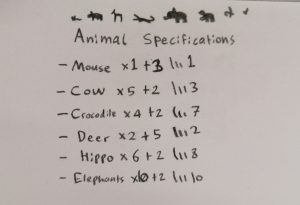 Animal Specifications
- Mouse x1 +3 lııı 1
- Cow x5 +2 lııı 3
- Crocodile x4 +2 lııı 7
- Deer x2 +5 lııı 2
- Hippo x6 +2 lııı 8
- Elephants x10 +2 lııı 10